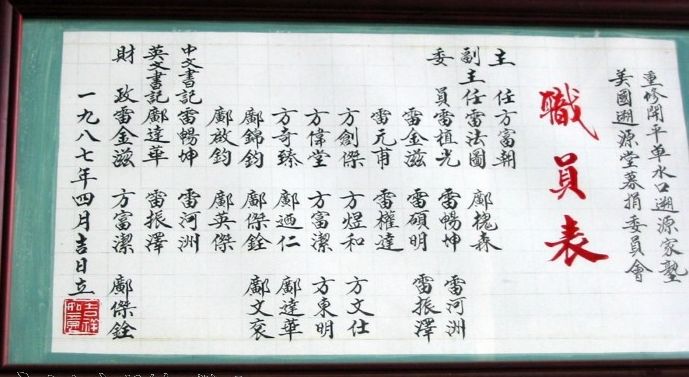 重修開平單水口遡源家塾
美國遡源堂募捐委員會
職員表
主任方富朝
副主任雷法圖 鄺槐森
委員雷植光 雷暢坤 雷河洲
雷金滋 雷碩明 雷振澤
雷元甫 雷權達
方創傑 方煜和 方文仕
方偉堂 方富潔 方東明
方奇臻 鄺迺仁 鄺達華
鄺錦鈞 鄺傑銓 鄺文袞
鄺啟鈞 鄺英傑
中文書記雷暢坤 雷河洲
英文書記鄺達華 雷振澤
財政雷金滋 方富潔 鄺傑銓
一九八七年四月吉日立
吉祥如意